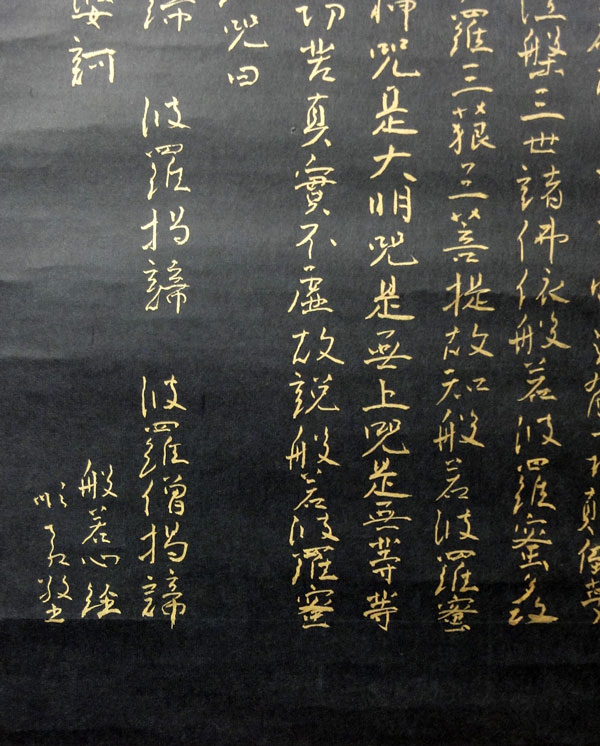 遠離一切顛倒夢
涅槃三世諸佛依般若波羅蜜多故
羅三藐三菩提故知般若波羅蜜
神咒是大明咒是無上咒是無等等
切苦真實不虛故說般若波羅蜜
咒曰
諦 波羅揭諦 波羅僧揭諦
婆訶
般若心經
敬書